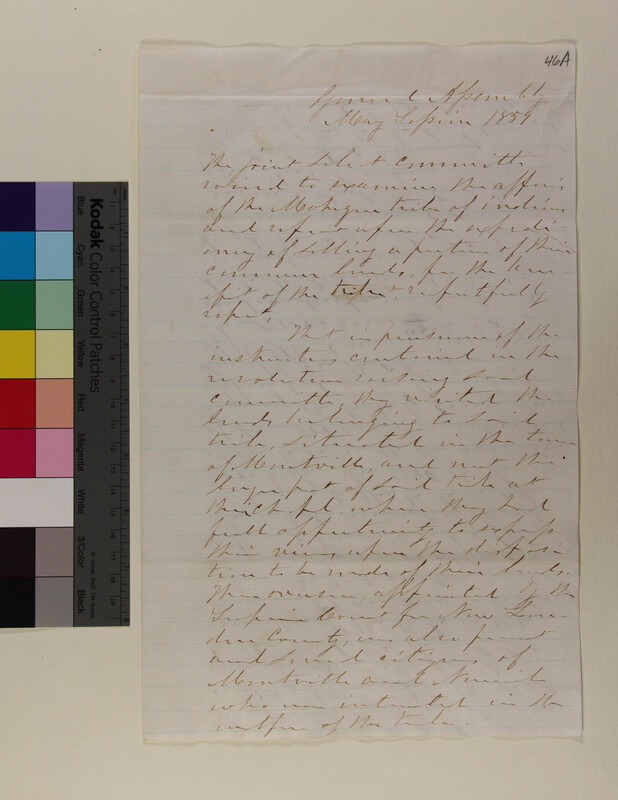 46A
General Assembly
May Session 1859.
The joint Select Committee
raised to examine the affairs
of the Mohegan tribe of indians
and report upon the expedi-
ency of selling a portion of their
common lands, for the ben-
efit of the tribe, respectfully
report,
That in pursuance of the
instructions contained in the
resolution raising said
committee they visited the
lands belonging to said
tribe, situated in the town
of Montville, and met the
large part of said tribe at
their chapel, where they had
full opportunity to express
their views upon the disposi-
tion to be made of their lands.
The overseer appointed by the
Superior Court for New Lon-
don County, was also present
and several citizens of
Montville and Norwich
who were interested in the
welfare of the tribe.
Kodak Color Control Patches
Blue
Cyan
Green
Yellow
Red
Magenta
White
3/Color
Black